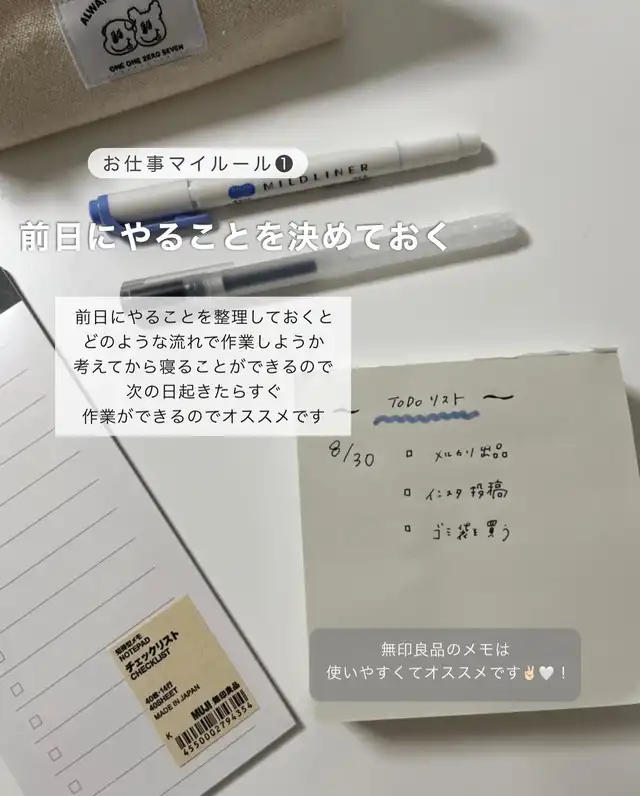 ALWAY
ONE ONE ZERO SEVEN
お仕事マイルール❶
MILDLINER
前日にやることを決めておく
前日にやることを整理しておくと
どのような流れで作業しようか
考えてから寝ることができるので
次の日起きたらすぐ
作業ができるのでオススメです
〜 ToDoリスト 〜
8/30
□ メルカリ出品
□ インスタ投稿
□ ゴミ袋を買う
短冊型メモ
NOTEPAD
チェックリスト
CHECKLIST
40枚・14行
40SHEET
MADE IN JAPAN
K MUJI 無印良品
4550002794354
無印良品のメモは
使いやすくてオススメです✌🏻🤍！